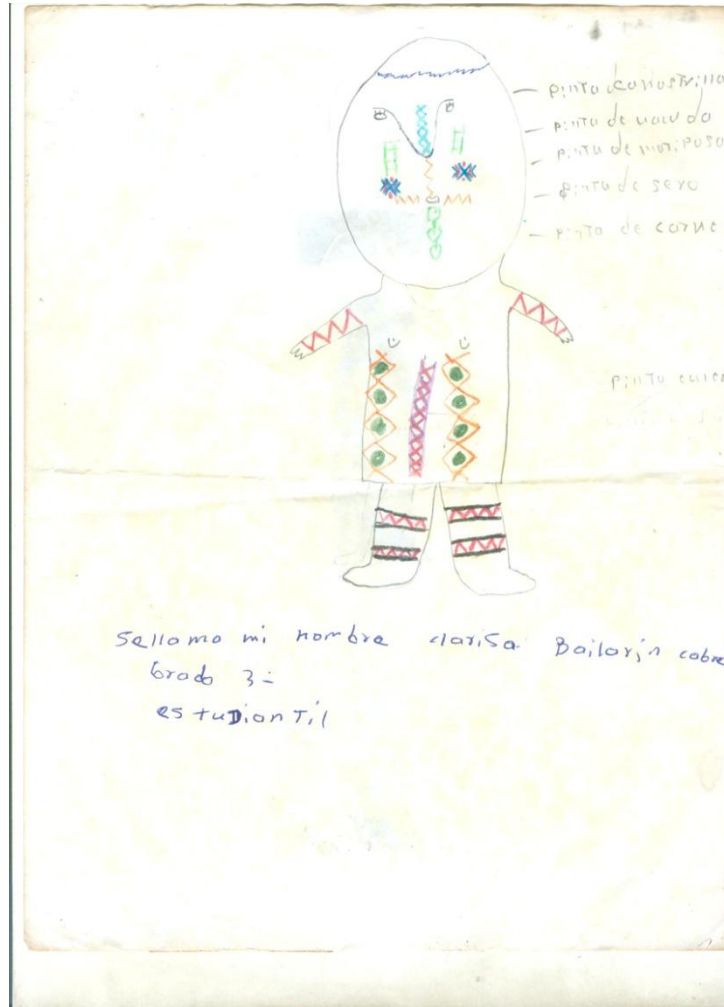 - pinta canastrilla
- pinta de
- pinta de moriposa
- pinta de sero
- pinta de corne
pinta
Sellamo mi nombre clarisa Bailarin cabre
Grado 3=
estudiantil